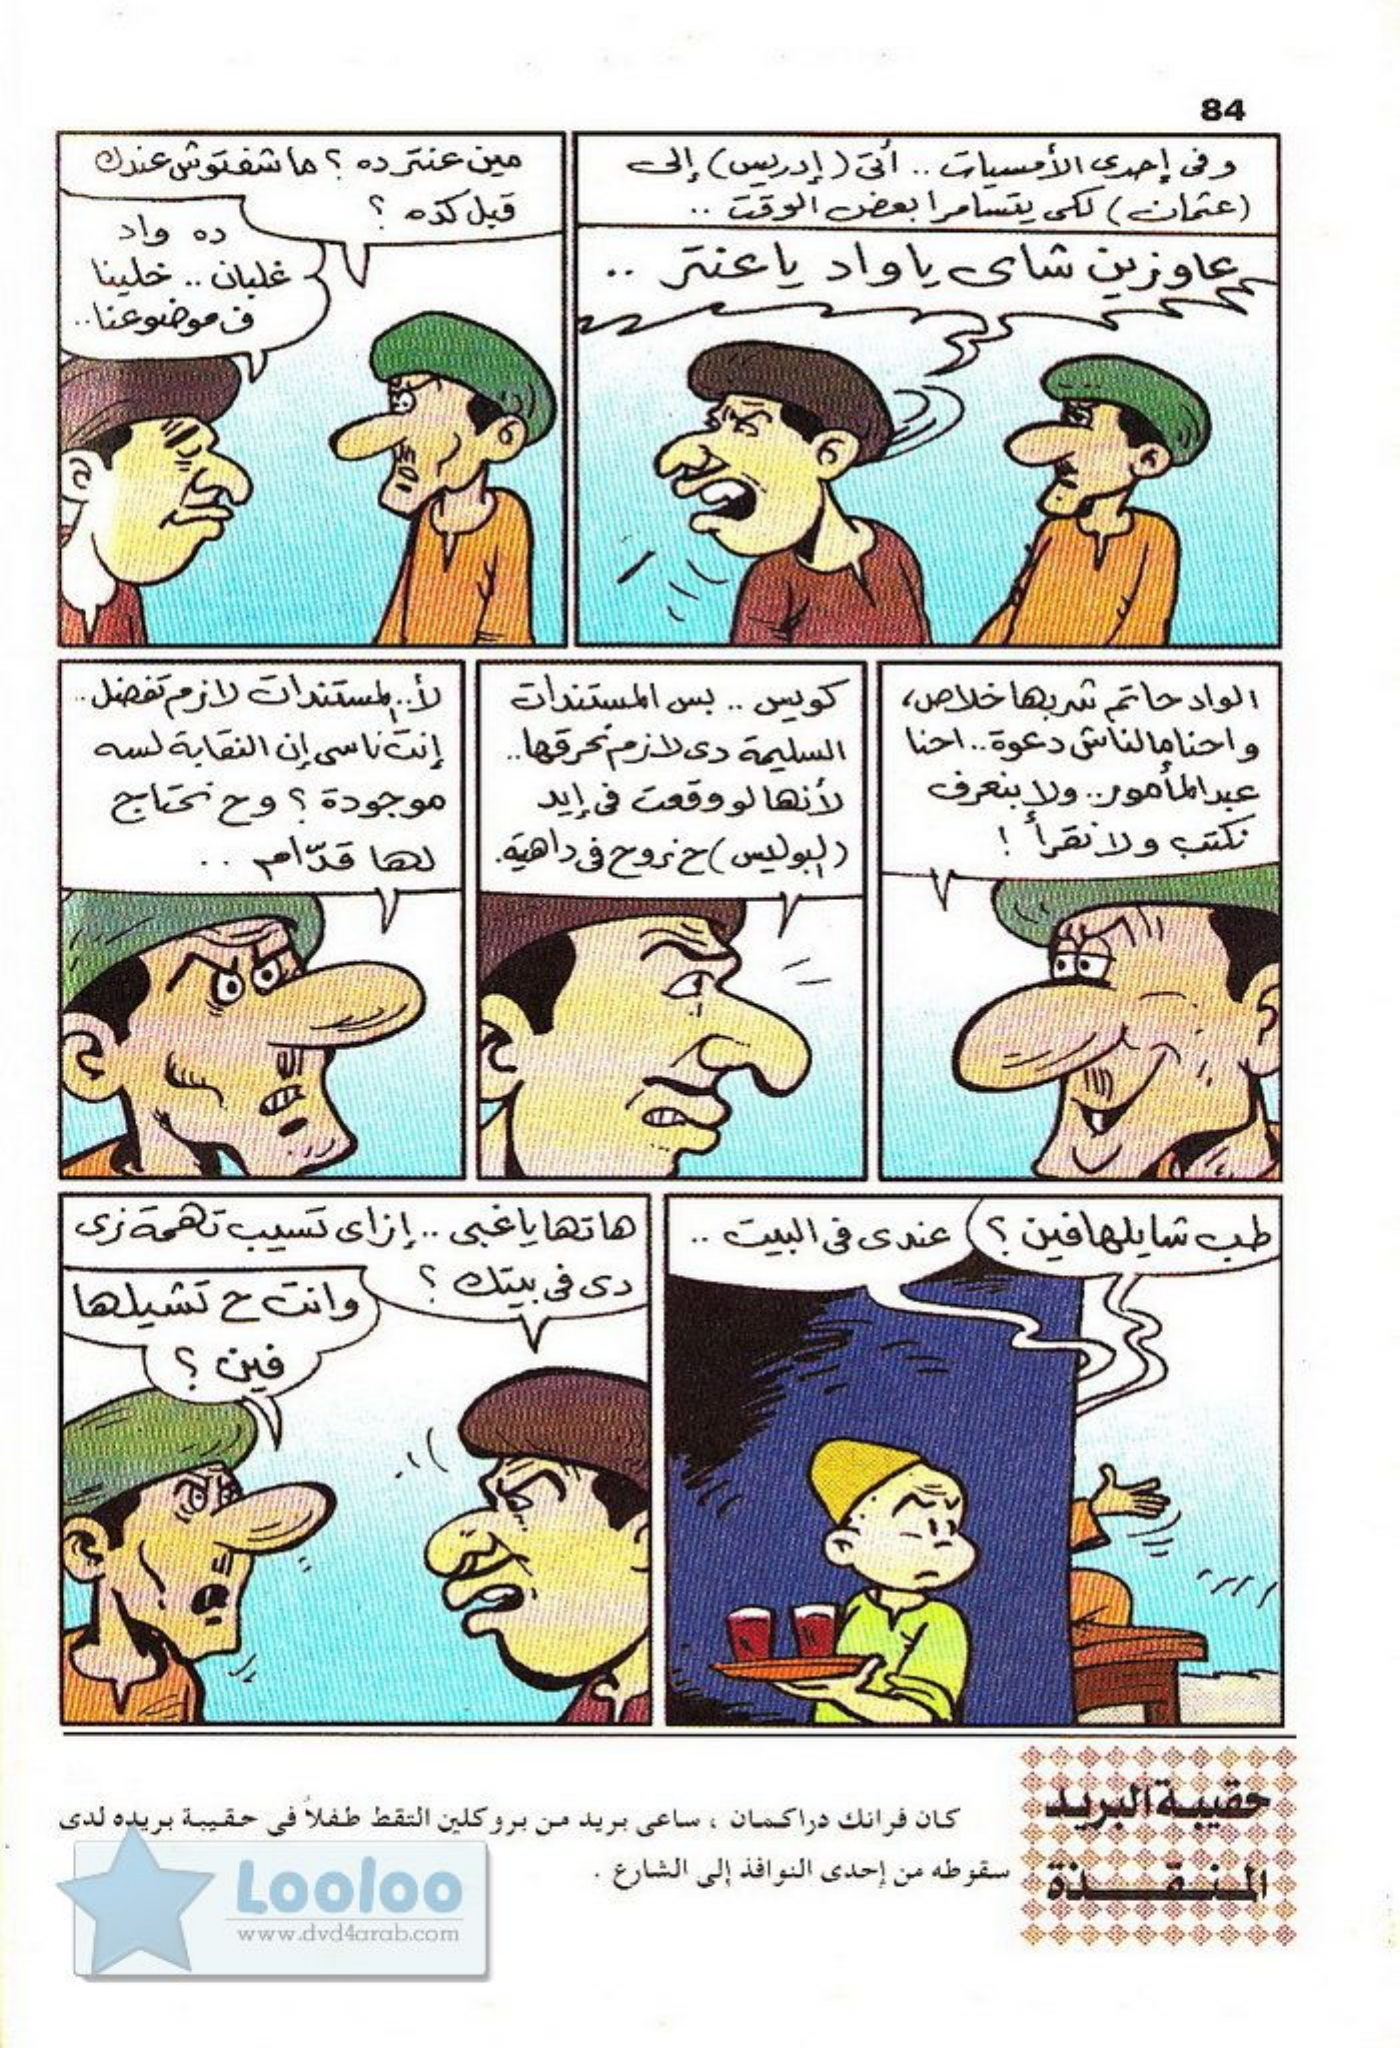 84
وفى إحدى الأمسيات .. أتى (إدريس) إلى
(عثمان) لكى يتسامرا بعض الوقت ..
عاوزين شاى ياواد ياعنتر ..
مين عنتر ده ؟ ما شفتوش عندك
قبل كده ؟
ده واد
غلبان .. خلينا
ف موضوعنا ..
الواد حاتم شربها خلاص،
واحنا مالناش دعوة .. احنا
عبد المأمور .. ولا بنعرف
نكتب ولا نقرأ !
كويس .. بس المستندات
السليمة دى لازم نحرقها ..
لأنها لو وقعت فى إيد
(البوليس) ح نروح فى داهية.
لأ .. المستندات لازم تفضل ..
إنت ناسى إن النقابة لسه
موجودة ؟ وح نحتاج
لها قدّام ..
طب شايلها فين ؟
عندى فى البيت ..
هاتها ياغبى .. إزاى تسيب تهمة زى
دى فى بيتك ؟
وانت ح تشيلها
فين ؟
حقيبة البريد
المنقذة
كان فرانك دراكمان ، ساعى بريد من بروكلين التقط طفلاً فى حقيبة بريده لدى
سقوطه من إحدى النوافذ إلى الشارع .
Looloo
www.dvd4arab.com